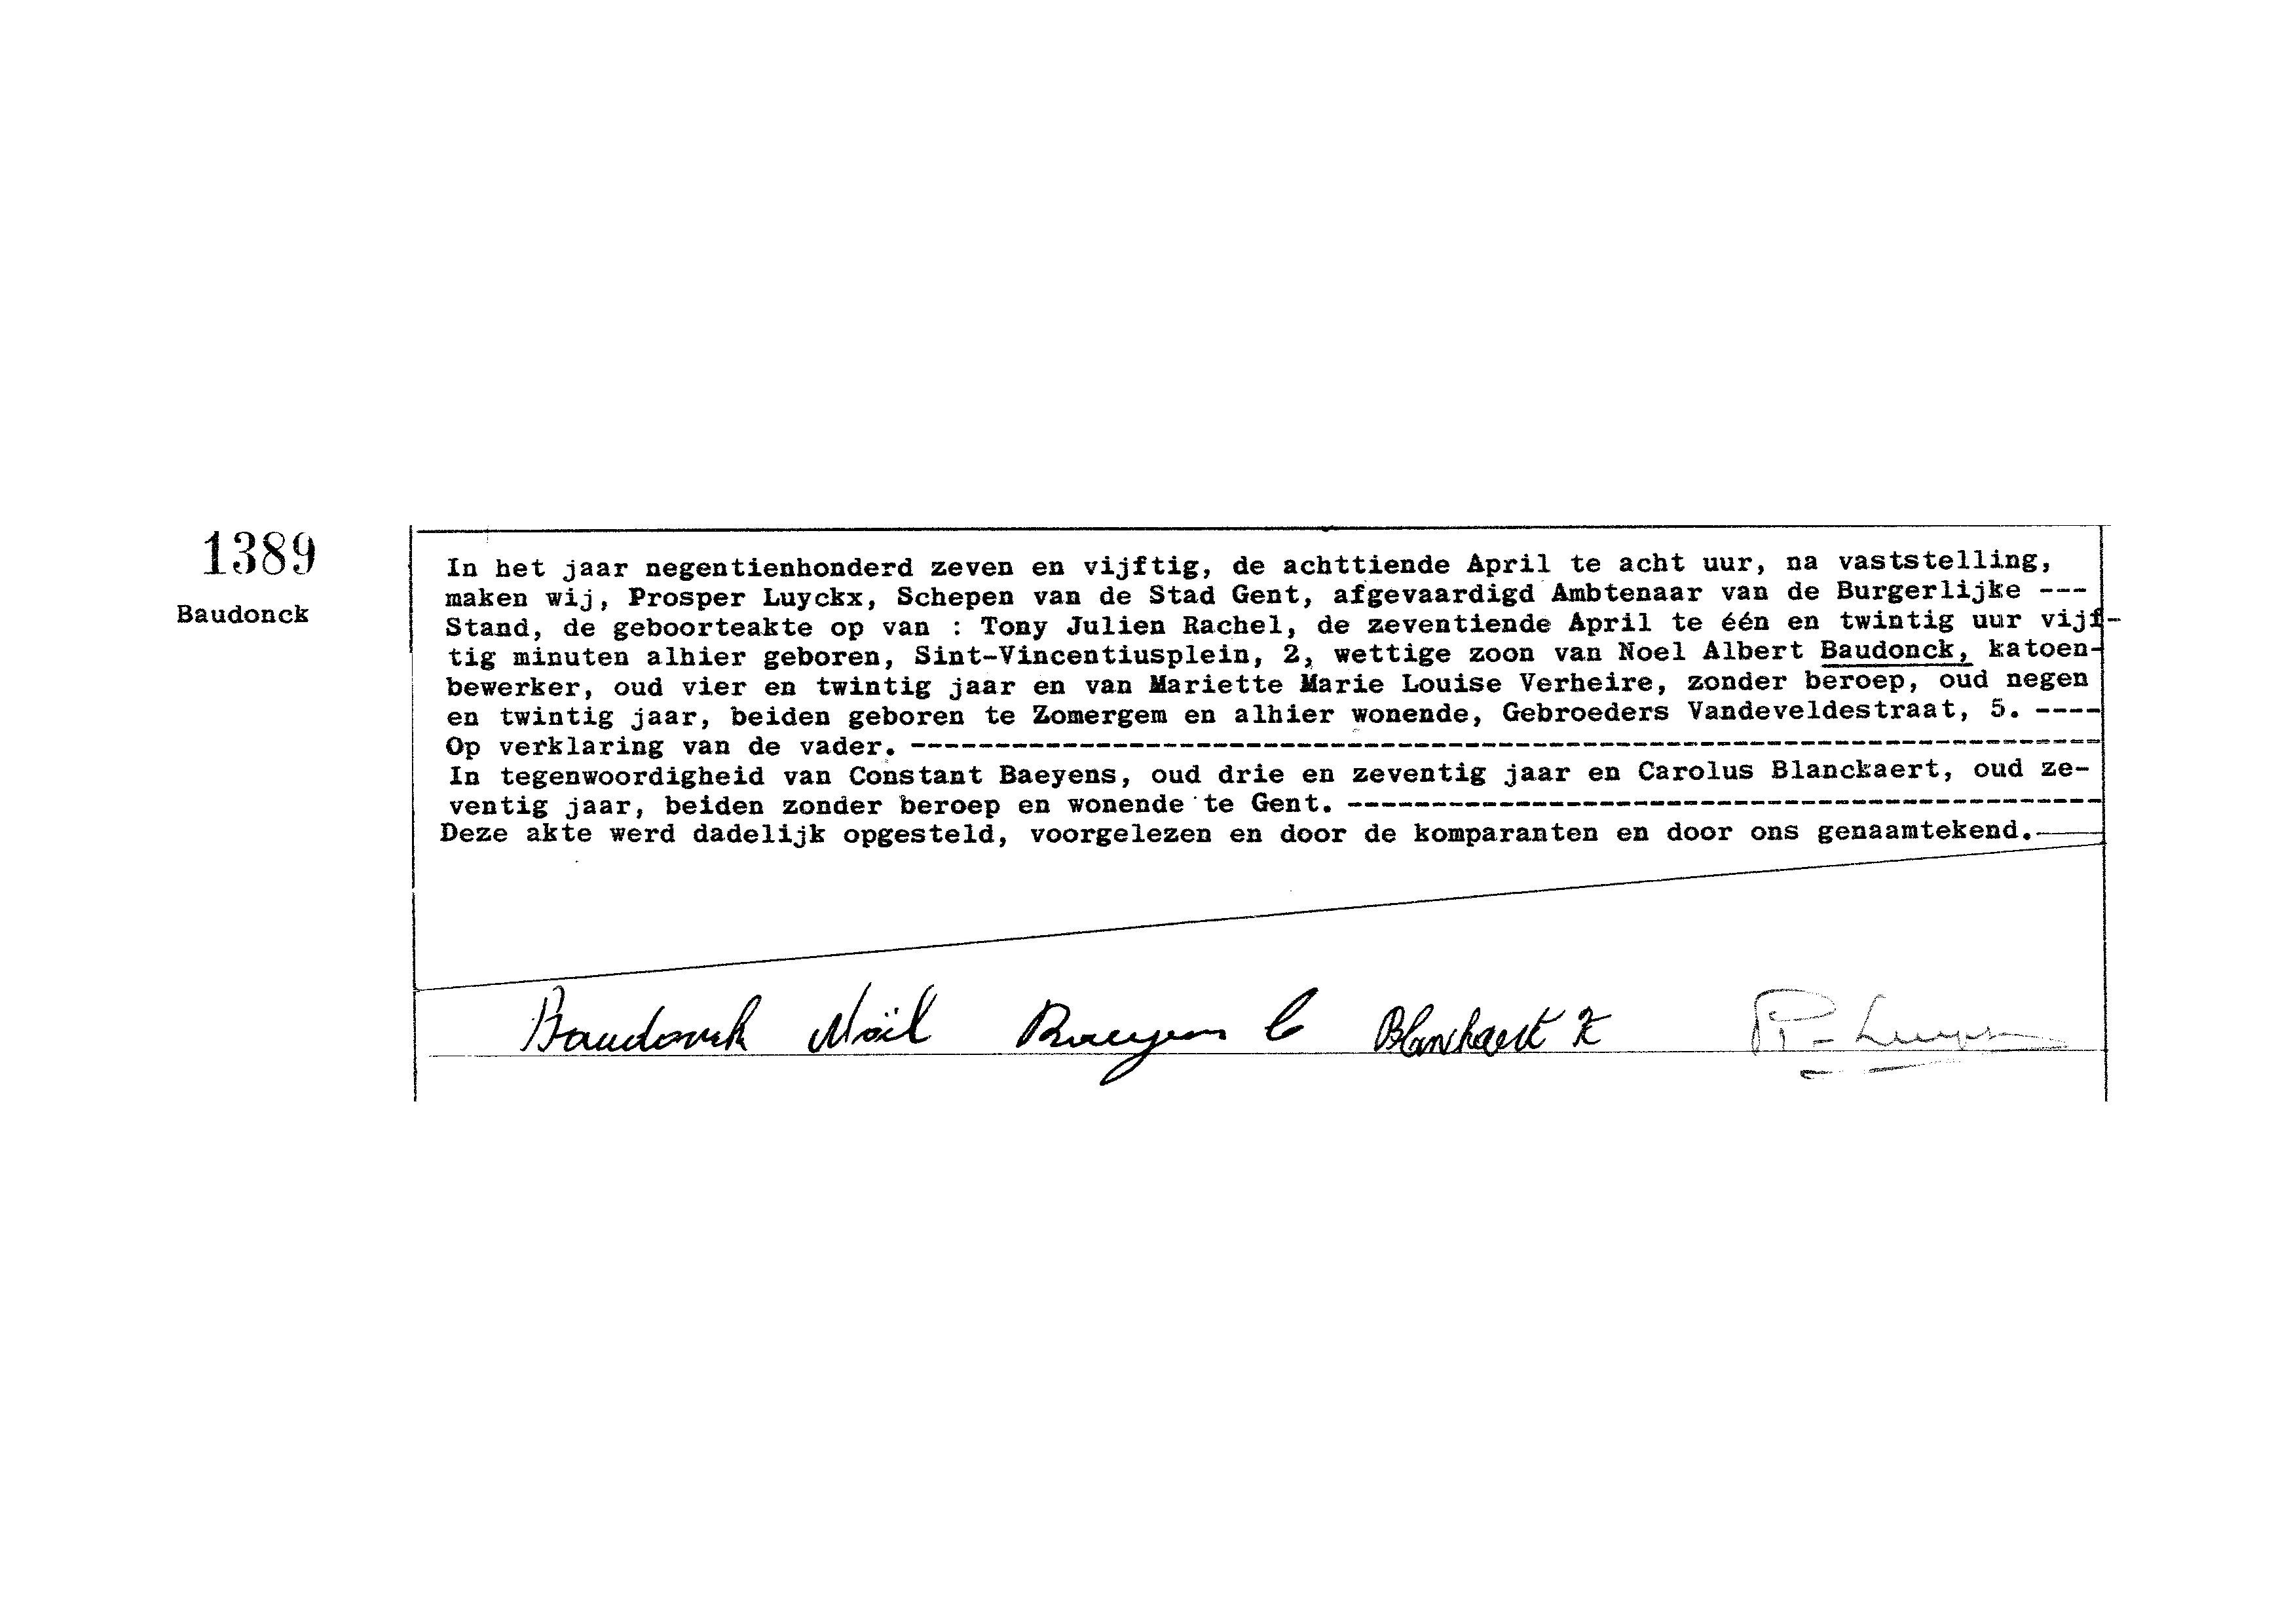 1389
Baudonck
In het jaar negentienhonderd zeven en vijftig, de achttiende April te acht uur, na vaststelling,
maken wij, Prosper Luyckx, Schepen van de Stad Gent, afgevaardigd Ambtenaar van de Burgerlijke ---
Stand, de geboorteakte op van : Tony Julien Rachel, de zeventiende April te één en twintig uur vijf-
tig minuten alhier geboren, Sint-Vincentiusplein, 2, wettige zoon van Noel Albert Baudonck, katoen-
bewerker, oud vier en twintig jaar en van Mariette Marie Louise Verheire, zonder beroep, oud negen
en twintig jaar, beiden geboren te Zomergem en alhier wonende, Gebroeders Vandeveldestraat, 5. ----
Op verklaring van de vader. -----------------------------------------------------------------------
In tegenwoordigheid van Constant Baeyens, oud drie en zeventig jaar en Carolus Blanckaert, oud ze-
ventig jaar, beiden zonder beroep en wonende te Gent. ---------------------------------------------
Deze akte werd dadelijk opgesteld, voorgelezen en door de komparanten en door ons genaamtekend.
Baudonck Noël Baeyens C Blanckaert K P. Luyckx